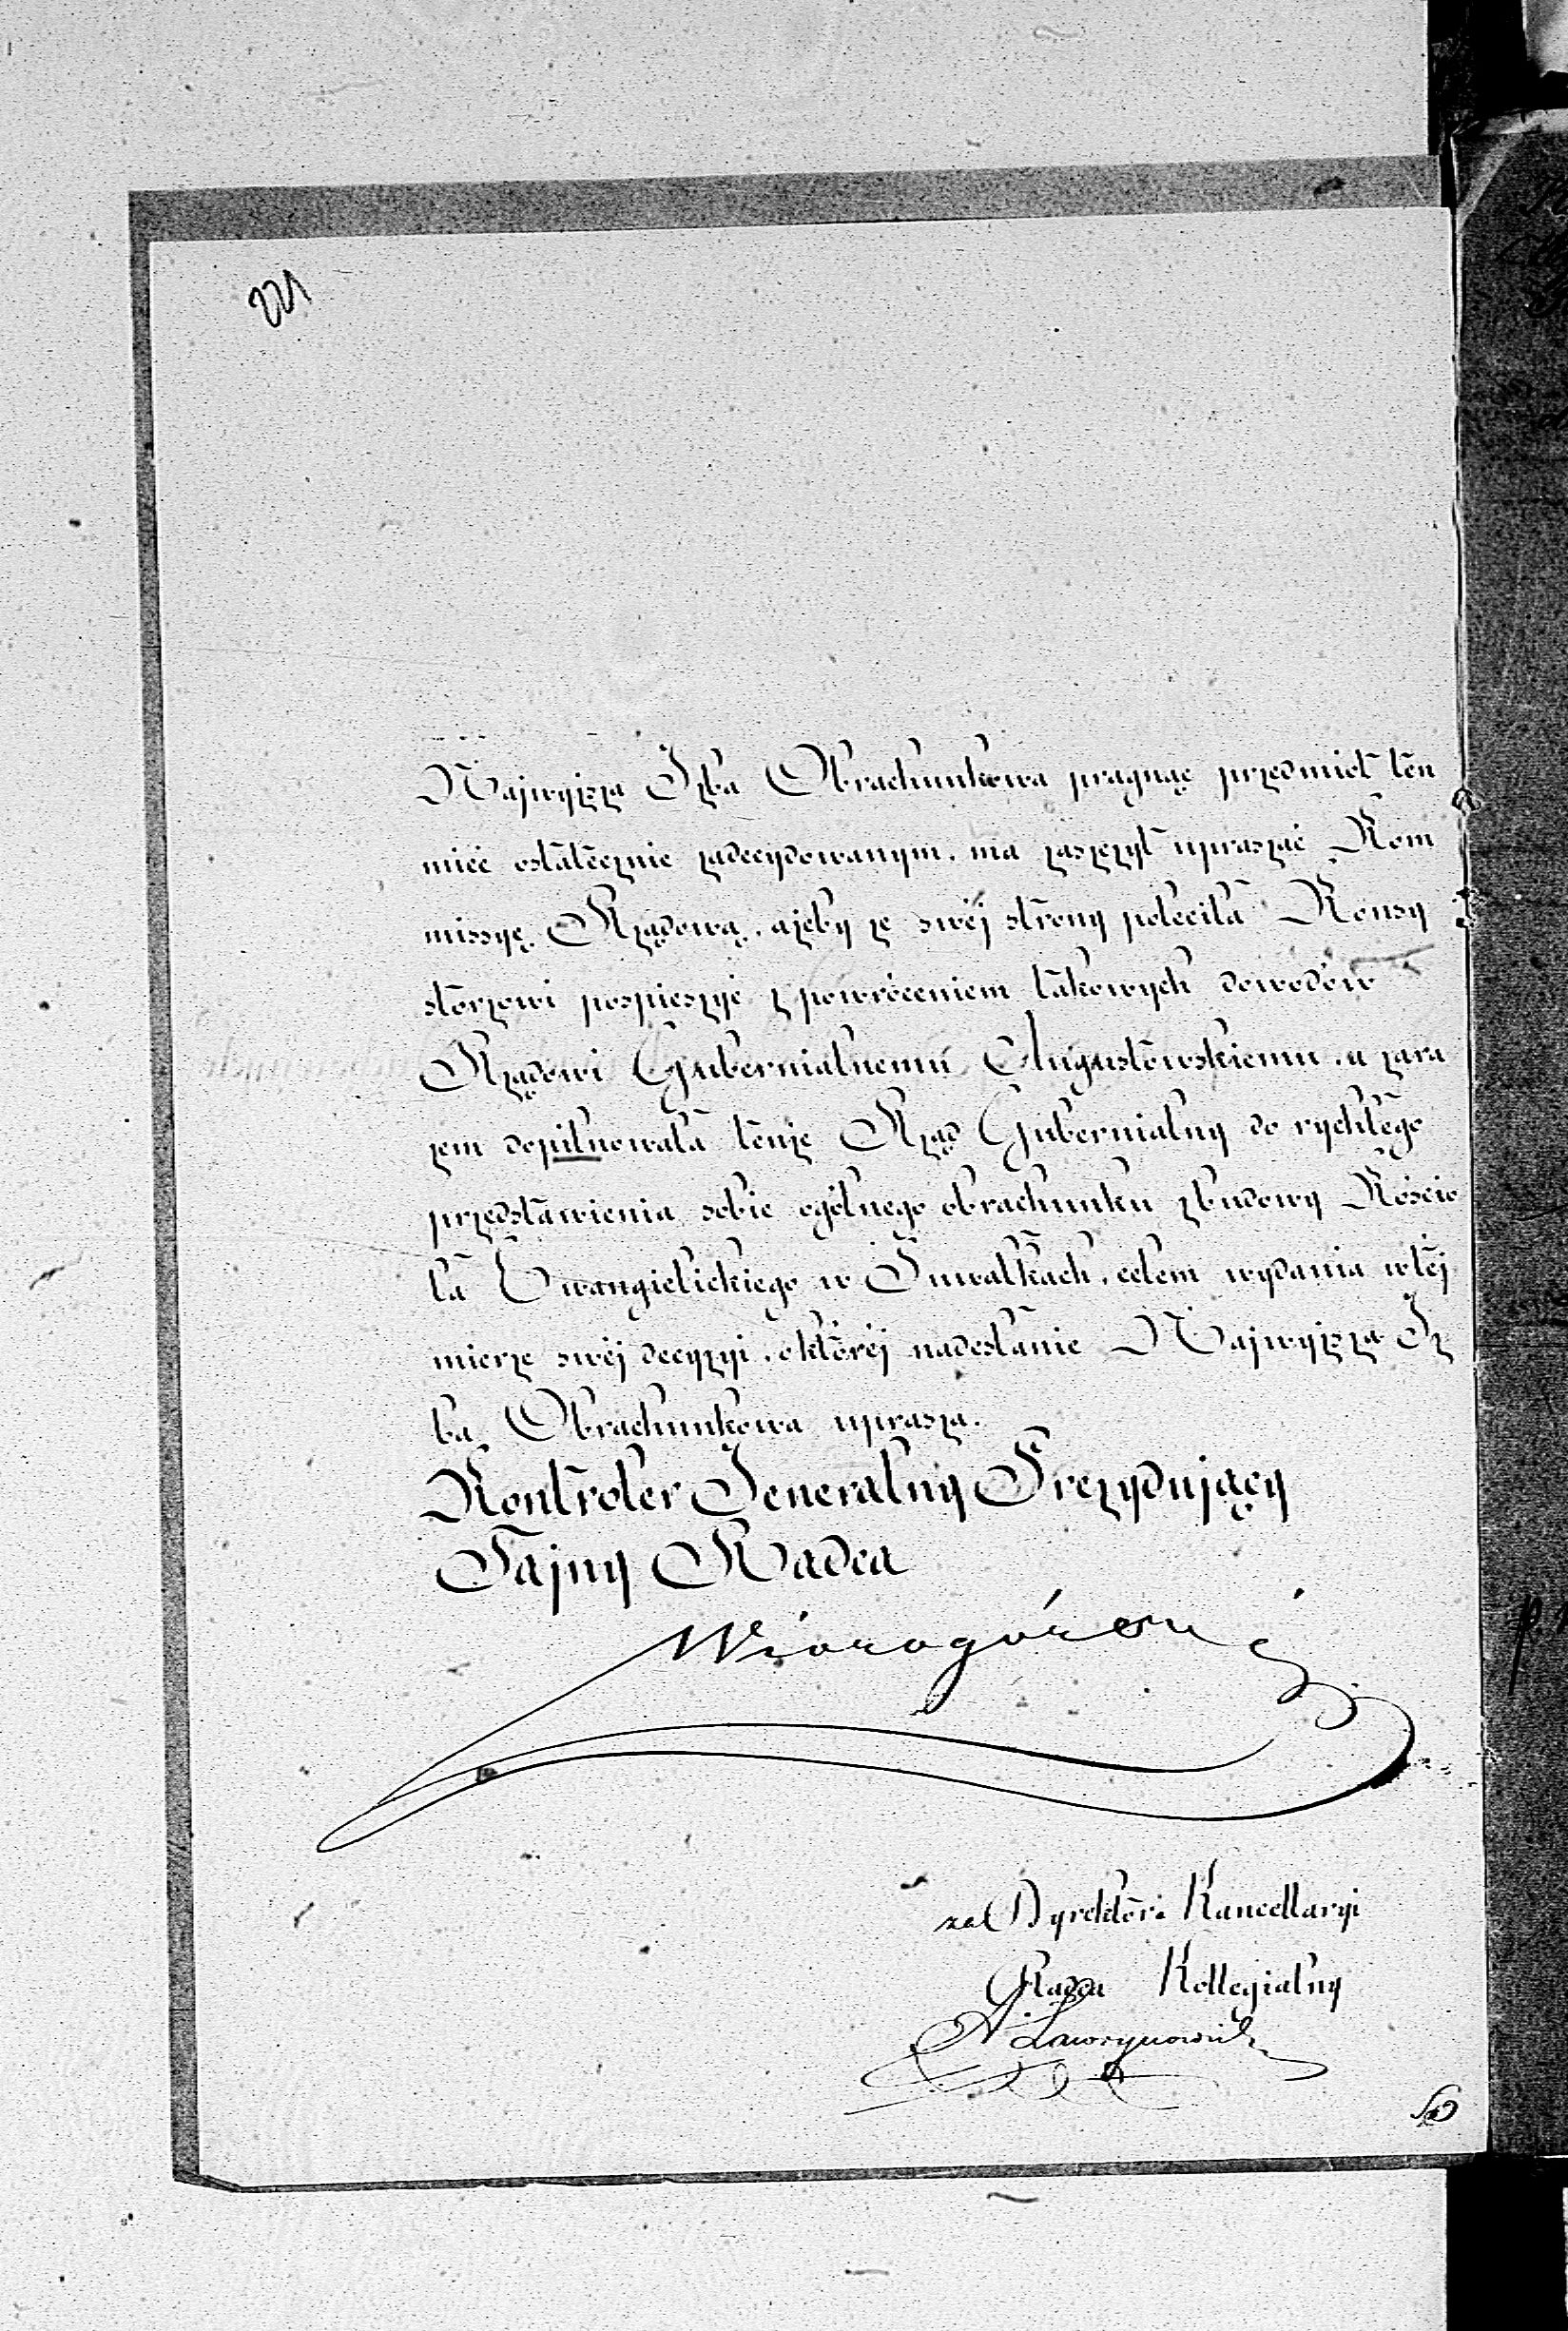 221
Najwyższa Izba Obrachunkowa pragnąc przedmiot ten
mieć ostatecznie zadecydowanym, ma zaszczyt upraszać Kom
missyę Rządową, ażeby ze swéj strony poleciła Konsy
storzowi pospieszyć z powróceniem takowych dowodów
Rządowi Gubernialnemu Augustowskiemu, a zara
zem dopilnowała tenże Rząd Gubernialny do rychłego
przedstawienia sobie ogólnego obrachunku z budowy Kościo
ła Ewangielickiego w Suwałkach, celem wydania w téj
mierze swéj decyzyi, o któréj nadesłanie Najwyższa Iz
ba Obrachunkowa uprasza.
Kontroler Jeneralny Prezydujący
Tajny Radca
za Dyrektora Kancellaryi
Radca Kollegialny
A. Ławrynowicz